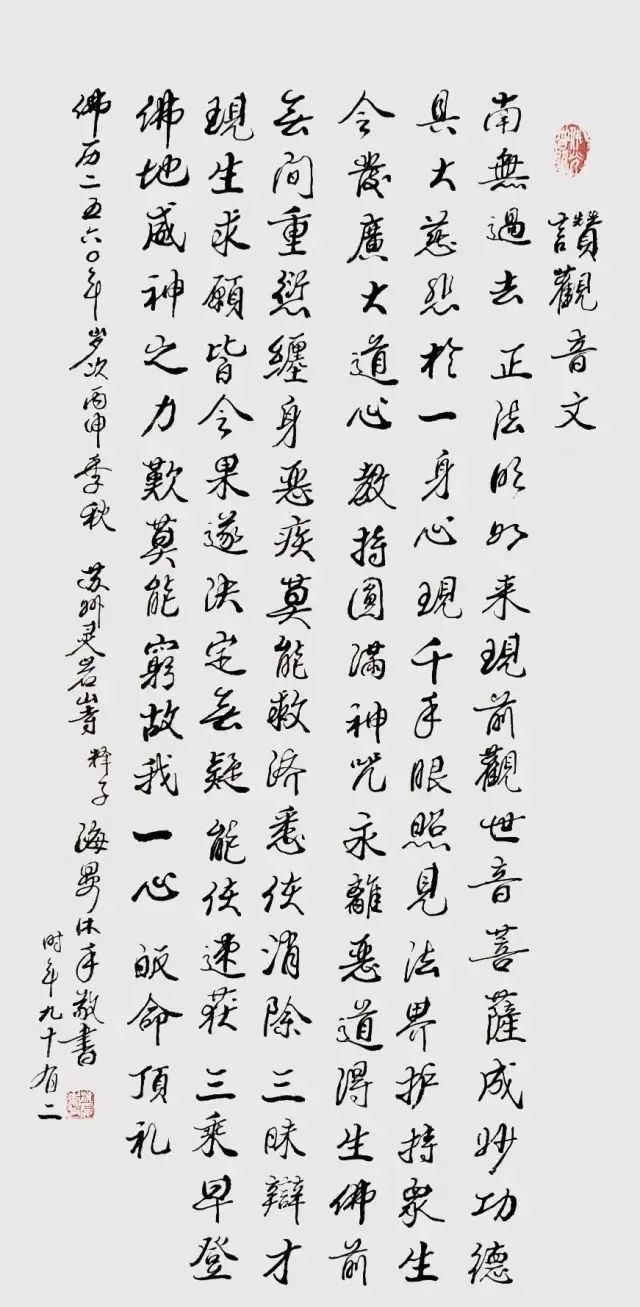 讚觀音文
南無過去正法明如来現前觀世音菩薩成妙功德
具大慈悲於一身心現千手眼照見法界护持衆生
令發廣大道心教持圓滿神咒永離惡道得生佛前
無间重愆纏身惡疾莫能救济悉使消除三昧辯才
現生求願皆令果遂决定無疑能使速获三乘早登
佛地威神之力歎莫能窮故我一心皈命頂礼
佛历二五六〇年岁次丙申季秋 苏州灵岩山寺 释子 海曼沐手敬書
时年九十有二